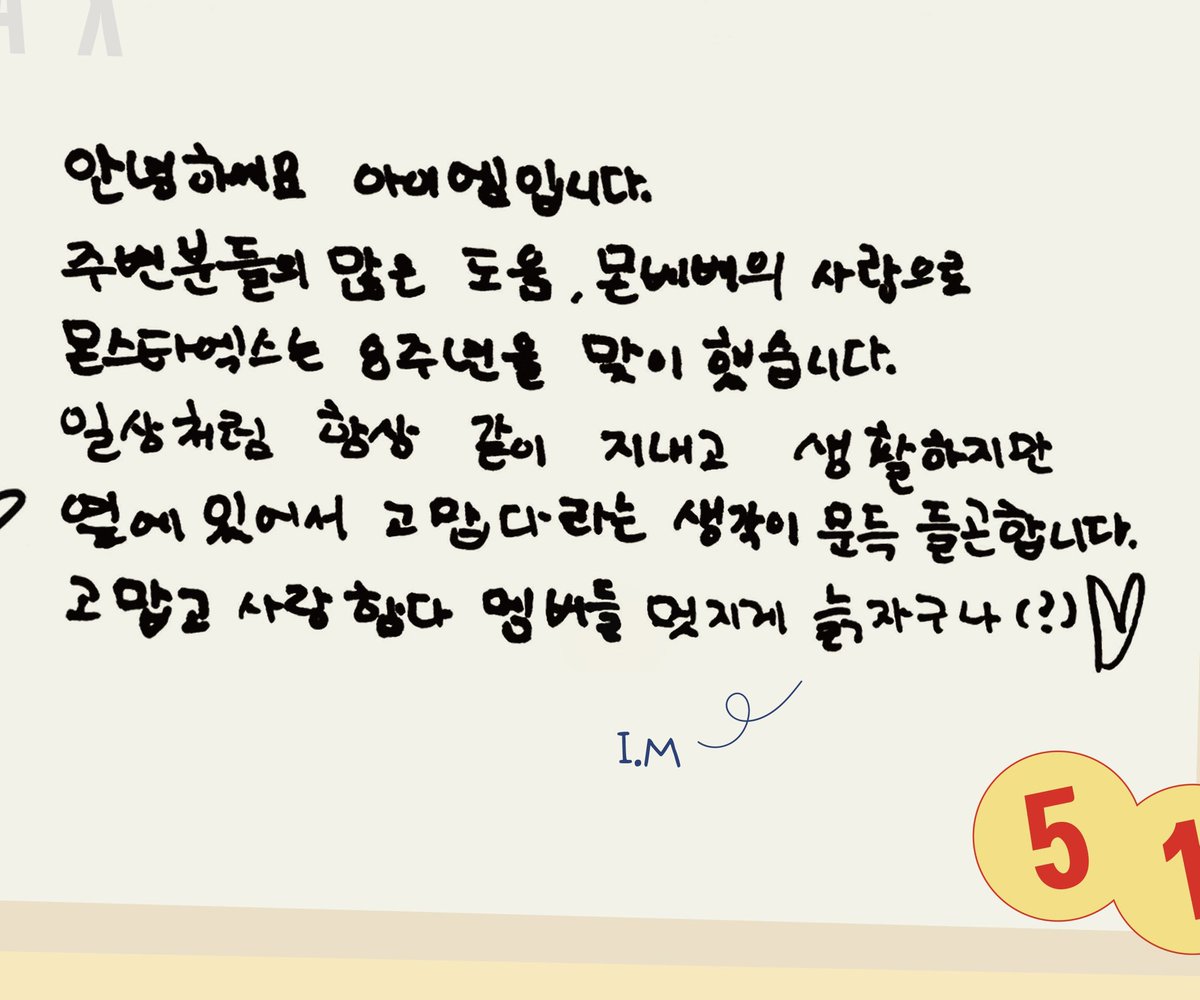 안녕하쎄요 아이엠입니다.
주변분들의 많은 도움, 몬베베의 사랑으로
몬스타엑스는 8주년을 맞이 했습니다.
일상처럼 항상 같이 지내고 생활하지만
옆에 있어서 고맙다라는 생각이 문득 들곤합니다.
고맙고 사랑한다 멤버들 멋지게 늙자구나(?)♡
I.M
5 1